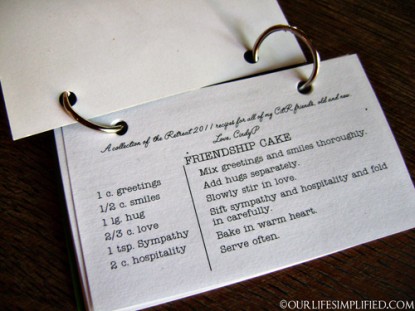 A collection of the Retreat 2011 recipes for all of my C&R friends, old and new.
Love, CindyP
FRIENDSHIP CAKE
1 c. greetings
1/2 c. smiles
1 lg. hug
2/3 c. love
1 tsp. Sympathy
2 c. hospitality
Mix greetings and smiles thoroughly.
Add hugs separately.
Slowly stir in love.
Sift sympathy and hospitality and fold
in carefully.
Bake in warm heart.
Serve often.
©OURLIFESIMPLIFIED.COM